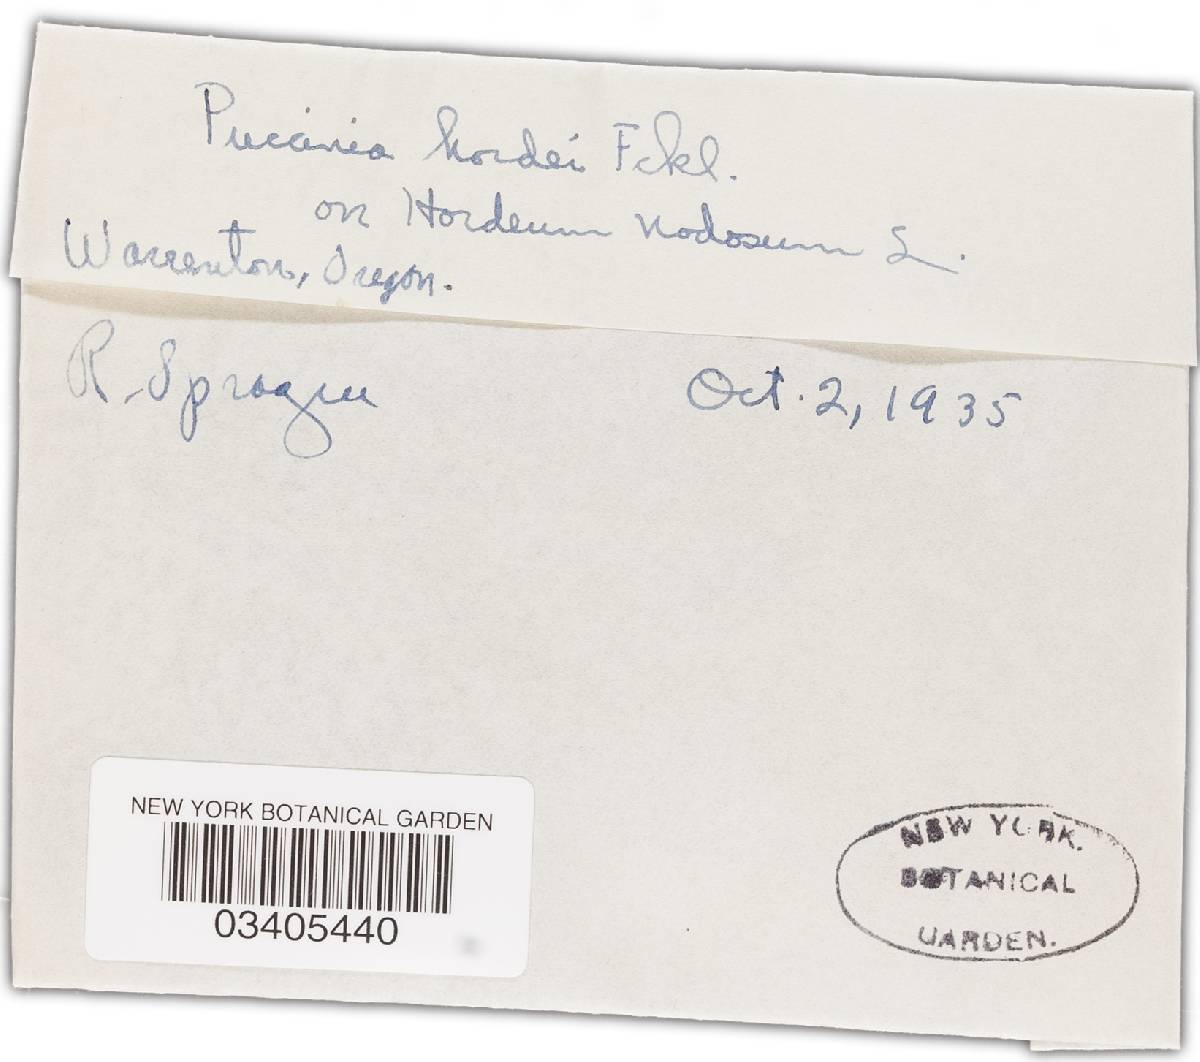 Puccinia hordei Fckl.
on Hordeum nodosum L.
Warrenton, Oregon.
R. Sprague Oct. 2, 1935
NEW YORK BOTANICAL GARDEN
03405440
NEW YORK.
BOTANICAL
GARDEN.